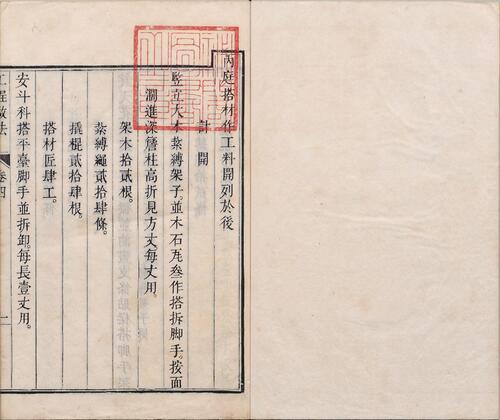 內庭搭材作工料開列於後
計開
竪立大木紮縛架子並木石瓦叁作搭拆脚手按面
濶進深簷柱高折見方丈每丈用
架木拾貳根。
紮縛䋲貳拾肆條。
撬棍貳拾肆根。
搭材匠肆工。
安斗科搭平臺脚手並拆卸每長壹丈用。
工程做法 卷四 一